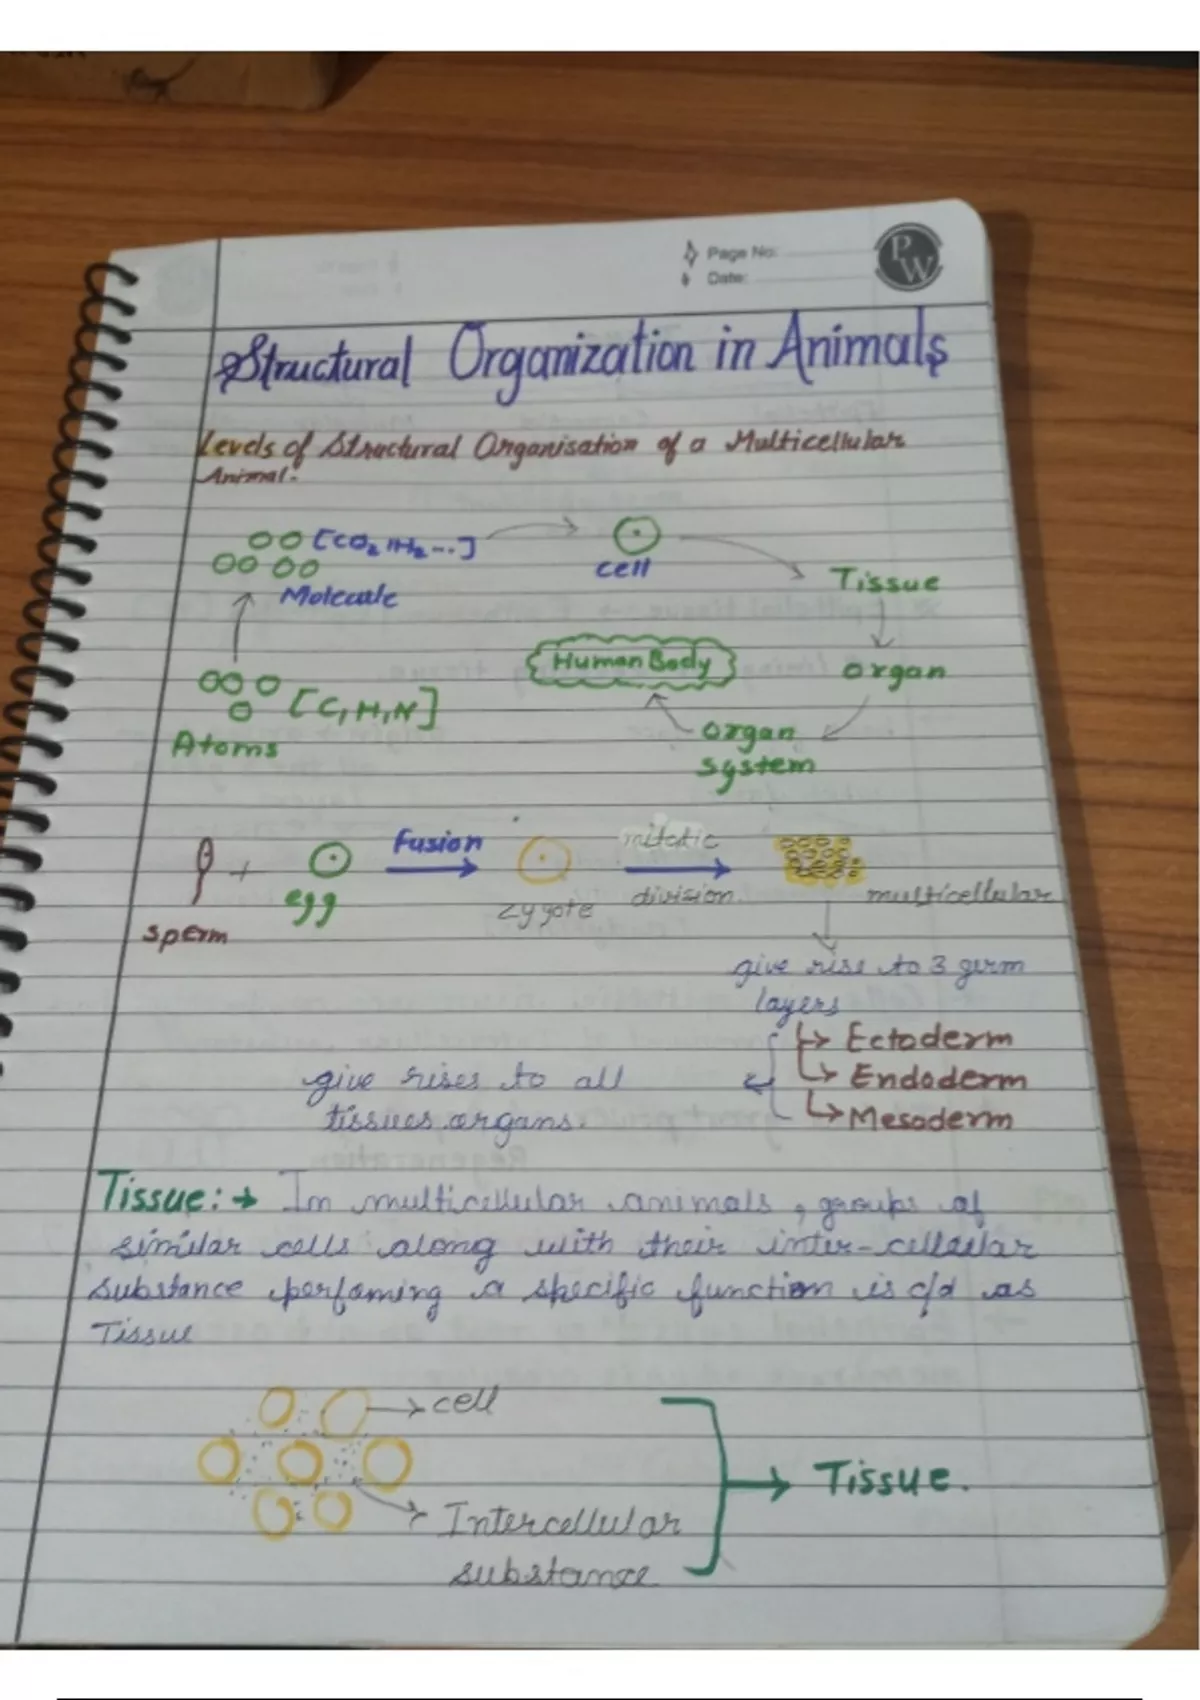 Page No:
Date:
PW
Structural Organization in Animals
Levels of Structural Organisation of a Multicellular
Animal.
[CO2, H2 ...]
Molecule
cell
Tissue
Organ
Organ
system
Human Body
[C, H, N]
Atoms
sperm
+
egg
fusion
zygote
mitotic
division
multicellular
give rise to 3 germ
layers
Ectoderm
Endoderm
Mesoderm
give rises to all
tissues organs.
Tissue:→ In multicellular animals, groups of
similar cells along with their inter-cellular
substance perfoming a specific function is c/d as
Tissue
cell
Intercellular
substance
Tissue.